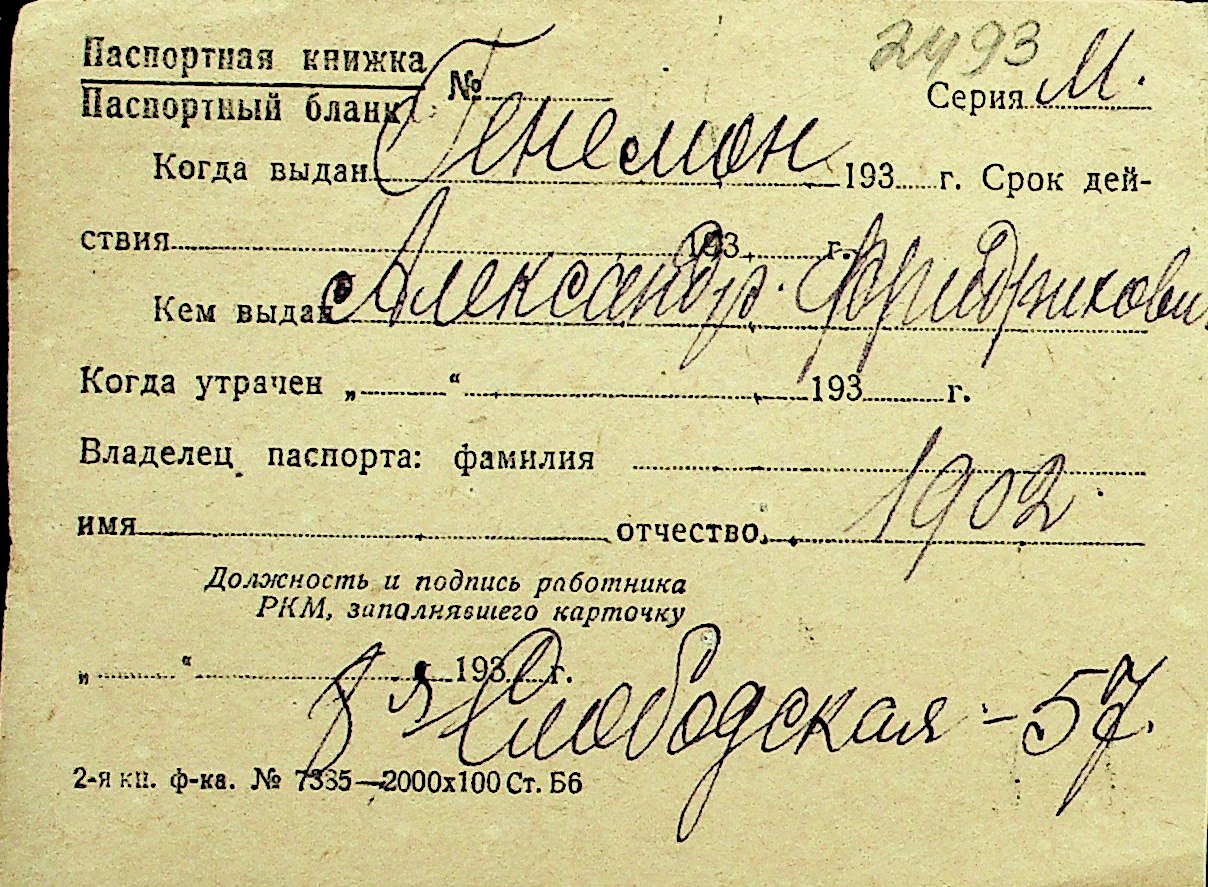 2493
Паспортная книжка
Паспортный бланк № Серия М.
Генемон
Когда выдан 193 г. Срок дей-
ствия 193 г.
Александр. Фридрихови
Кем выдан
Когда утрачен „ “ 193 г.
Владелец паспорта: фамилия
1902.
имя отчество
Должность и подпись работника
РКМ, заполнявшего карточку
„ “ 193 г.
я Слободская - 57.
2-я кн. ф-ка. № 7335—2000х100 Ст. Б6